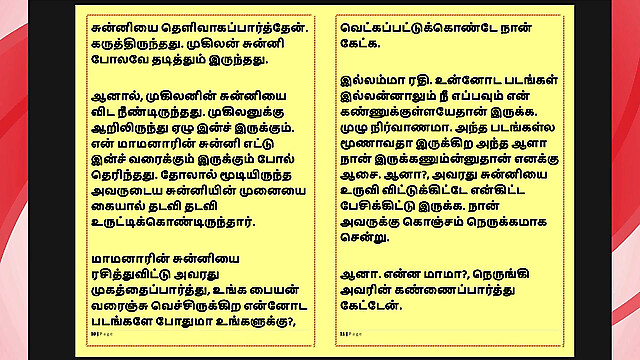 சுன்னியை தெளிவாகப்பார்த்தேன்.
கருத்திருந்தது. முகிலன் சுன்னி
போலவே தடித்தும் இருந்தது.
ஆனால், முகிலனின் சுன்னியை
விட நீண்டிருந்தது. முகிலனுக்கு
ஆறிலிருந்து ஏழு இன்ச் இருக்கும்.
என் மாமனாரின் சுன்னி எட்டு
இன்ச் வரைக்கும் இருக்கும் போல்
தெரிந்தது. தோலால் மூடியிருந்த
அவருடைய சுன்னியின் முனையை
கையால் தடவி தடவி
உருட்டிக்கொண்டிருந்தார்.
மாமனாரின் சுன்னியை
ரசித்துவிட்டு அவரது
முகத்தைப்பார்த்து, உங்க பையன்
வரைஞ்சு வெச்சிருக்கிற என்னோட
படங்களே போதுமா உங்களுக்கு?,
10 | Page
வெட்கப்பட்டுக்கொண்டே நான்
கேட்க.
இல்லம்மா ரதி. உன்னோட படங்கள்
இல்லன்னாலும் நீ எப்பவும் என்
கண்ணுக்குள்ளயேதான் இருக்க.
முழு நிர்வாணமா. அந்த படங்கள்ல
மூணாவதா இருக்கிற அந்த ஆளா
நான் இருக்கணும்ன்னுதான் எனக்கு
ஆசை. ஆனா?, அவரது சுன்னியை
உருவி விட்டுக்கிட்டே என்கிட்ட
பேசிக்கிட்டு இருக்க. நான்
அவருக்கு கொஞ்சம் நெருக்கமாக
சென்று.
ஆனா. என்ன மாமா?, நெருங்கி
அவரின் கண்ணைப்பார்த்து
கேட்டேன்.
11 | Page